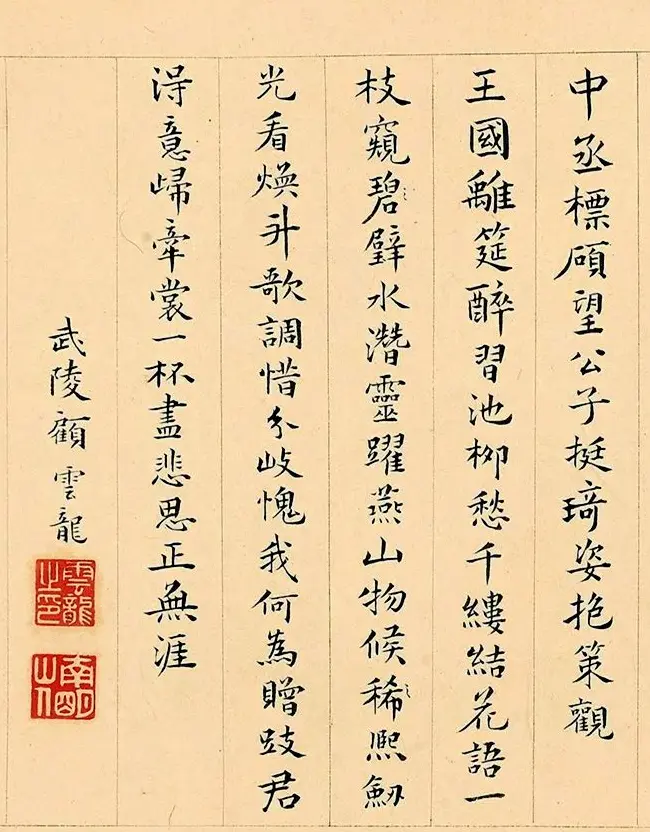 中丞標碩望公子挺琦姿抱策觀
王國離筵醉習池柳愁千縷結花語一
枝窺碧璧水潛靈躍燕山物候稀熙劒
光看煥斗歌調惜分岐愧我何為贈跂君
得意歸牽裳一杯盡悲思正無涯
武陵顧雲龍
雲龍之印